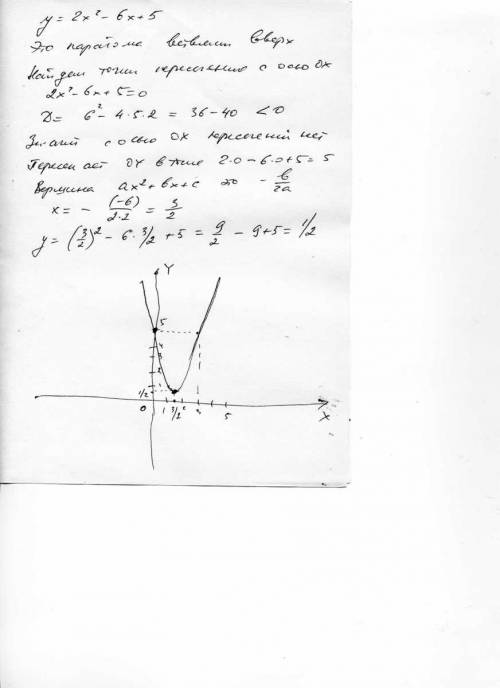 y = 2x² - 6x + 5
Это парабола ветвями вверх
Найдем точки пересечения с осью OX
2x² - 6x + 5 = 0
D = 6² - 4·5·2 = 36 - 40 < 0
Значит с осью OX пересечений нет
OX в 2·0 - 6·0 + 5 = 5
Вершина ax² + bx + c это - b/2a
x = - (-6)/2·2 = 3/2
y = (3/2)² - 6·3/2 + 5 = 9/2 - 9 + 5 = 1/2
Y
5
4
3
2
1
1/2
0 1 3/2 2 5
X